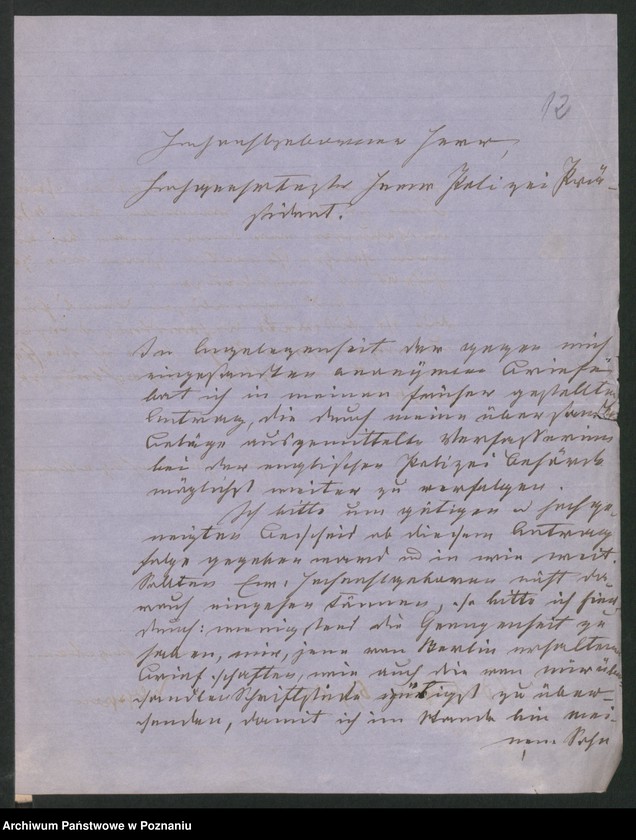 12
Hochwohlgeborener Herr,
Hochgeehrtester Herr Polizei Prä-
sident!
In Angelegenheit der gegen mich
eingesandten anonymen Briefe
bat ich in meinem früher gestellten
Antrag, die durch meine übersandten
Beläge ausgemittelte Verfasserin
bei der englischen Polizei Behörde
möglichst weiter zu verfolgen.
Ich bitte um gütigen u hochge-
neigten Bescheid ob diesem Antrag
folge gegeben ward u in wie weit.
Sollten Ew. Hochwohlgeboren nicht da-
rauf eingehen können, so bitte ich hier-
durch: wenigstens die Gewogenheit zu
haben, mir, jene von Berlin erhaltenen
Briefschaften, wie auch die von mir über-
sandten Schriftstücke gütigst zu über-
senden, damit ich im Stande bin mei-
nem Sohn
Archiwum Państwowe w Poznaniu